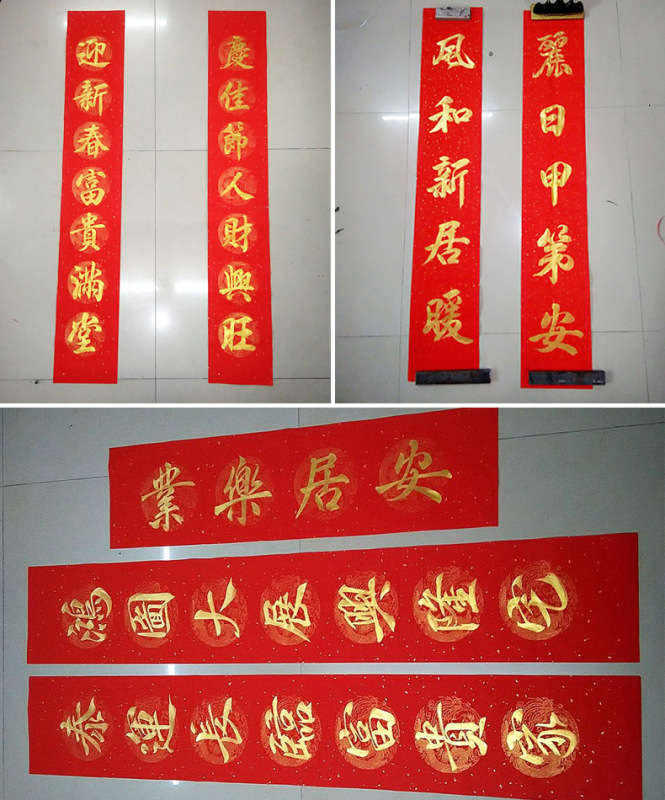 迎新春富貴滿堂
慶佳節人財興旺
風和新居暖
麗日甲第安
業樂居安
鴻圖大展興隆宅
泰運長臨富貴家